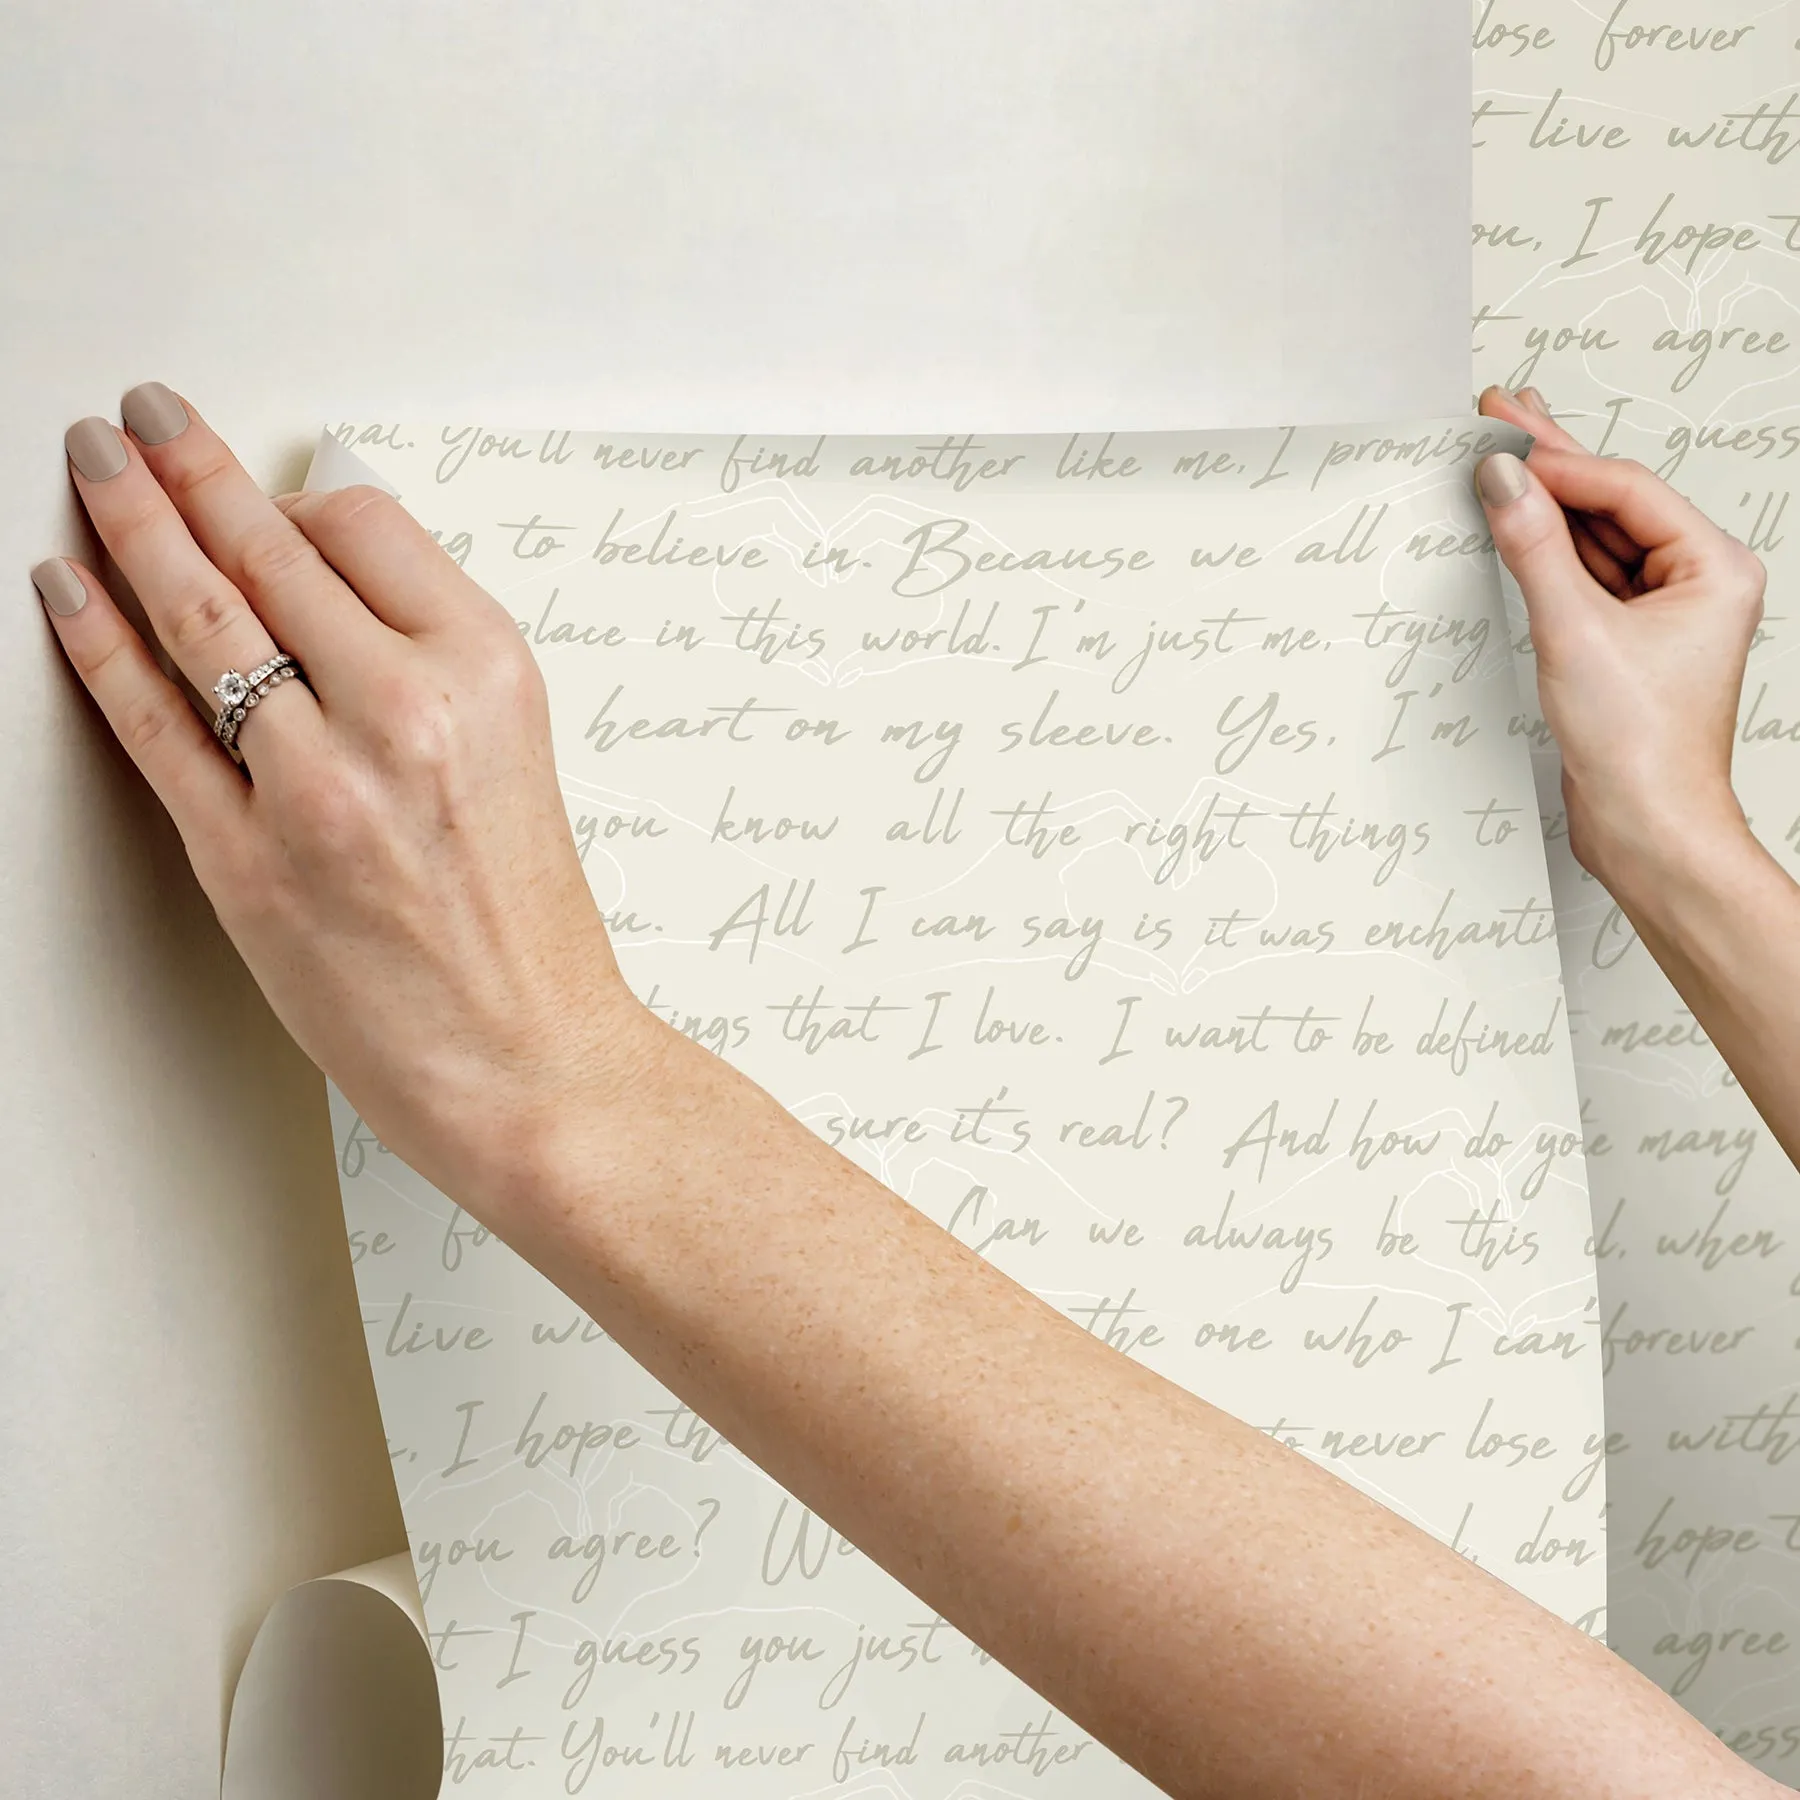 lose forever
t live with
ou, I hope t
t you agree
nal. You'll never find another like me, I promise I guess
ng to believe in. Because we all need 'll
place in this world. I'm just me, trying
heart on my sleeve. Yes, I'm un lac
you know all the right things to
ou. All I can say is it was enchanti
ings that I love. I want to be defined meet
sure it's real? And how do yo e many
se fo Can we always be this d, when
live wi the one who I can' forever
, I hope th to never lose y e with
you agree? We don' hope t
t I guess you just agree
hat. You'll never find another uess